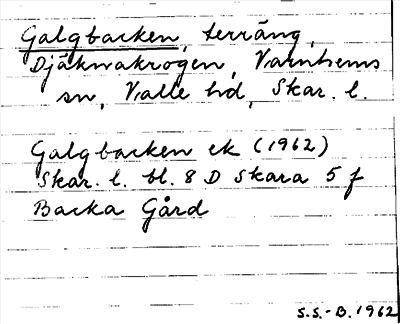 Galgbacken, terräng,
Djäknakrogen, Varnhems
sn, Valle hd, Skar. l.
Galgbacken ek (1962)
Skar. l. bl. 8 D Skara 5 f
Backa Gård
S.S.-B. 1962